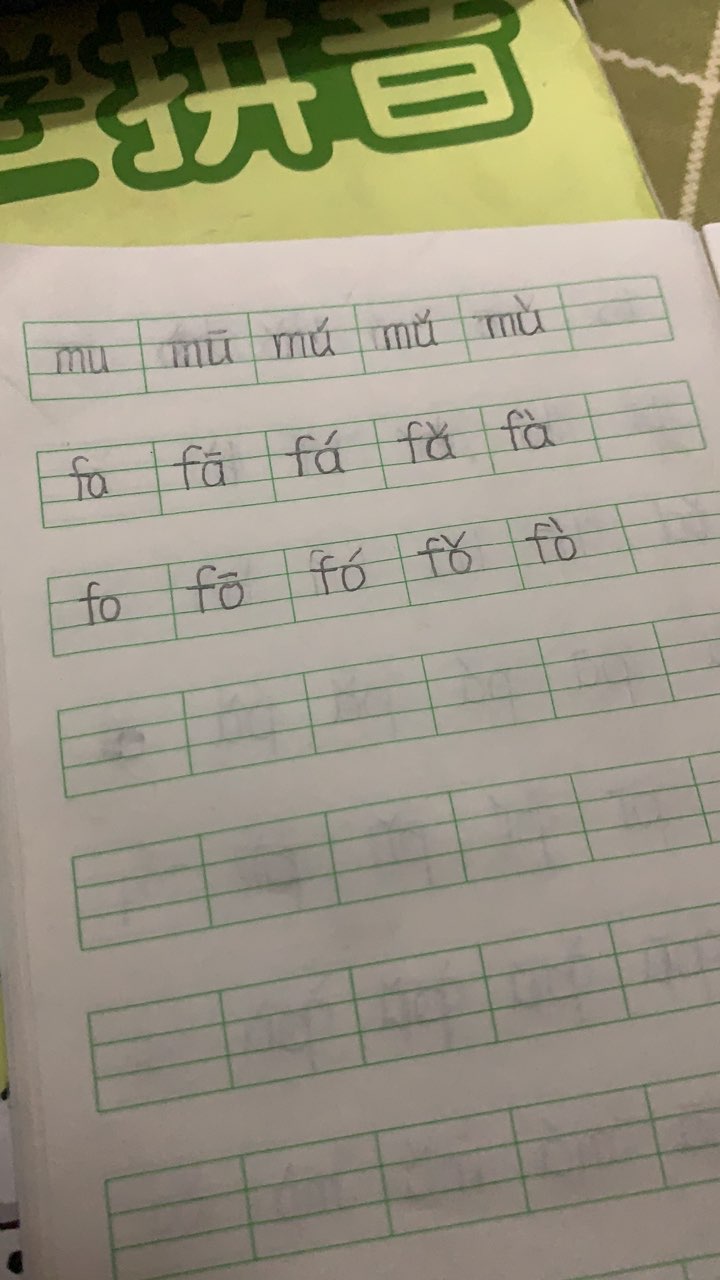 学拼音
mu mū mú mǔ mù
fa fā fá fǎ fà
fo fō fó fǒ fò